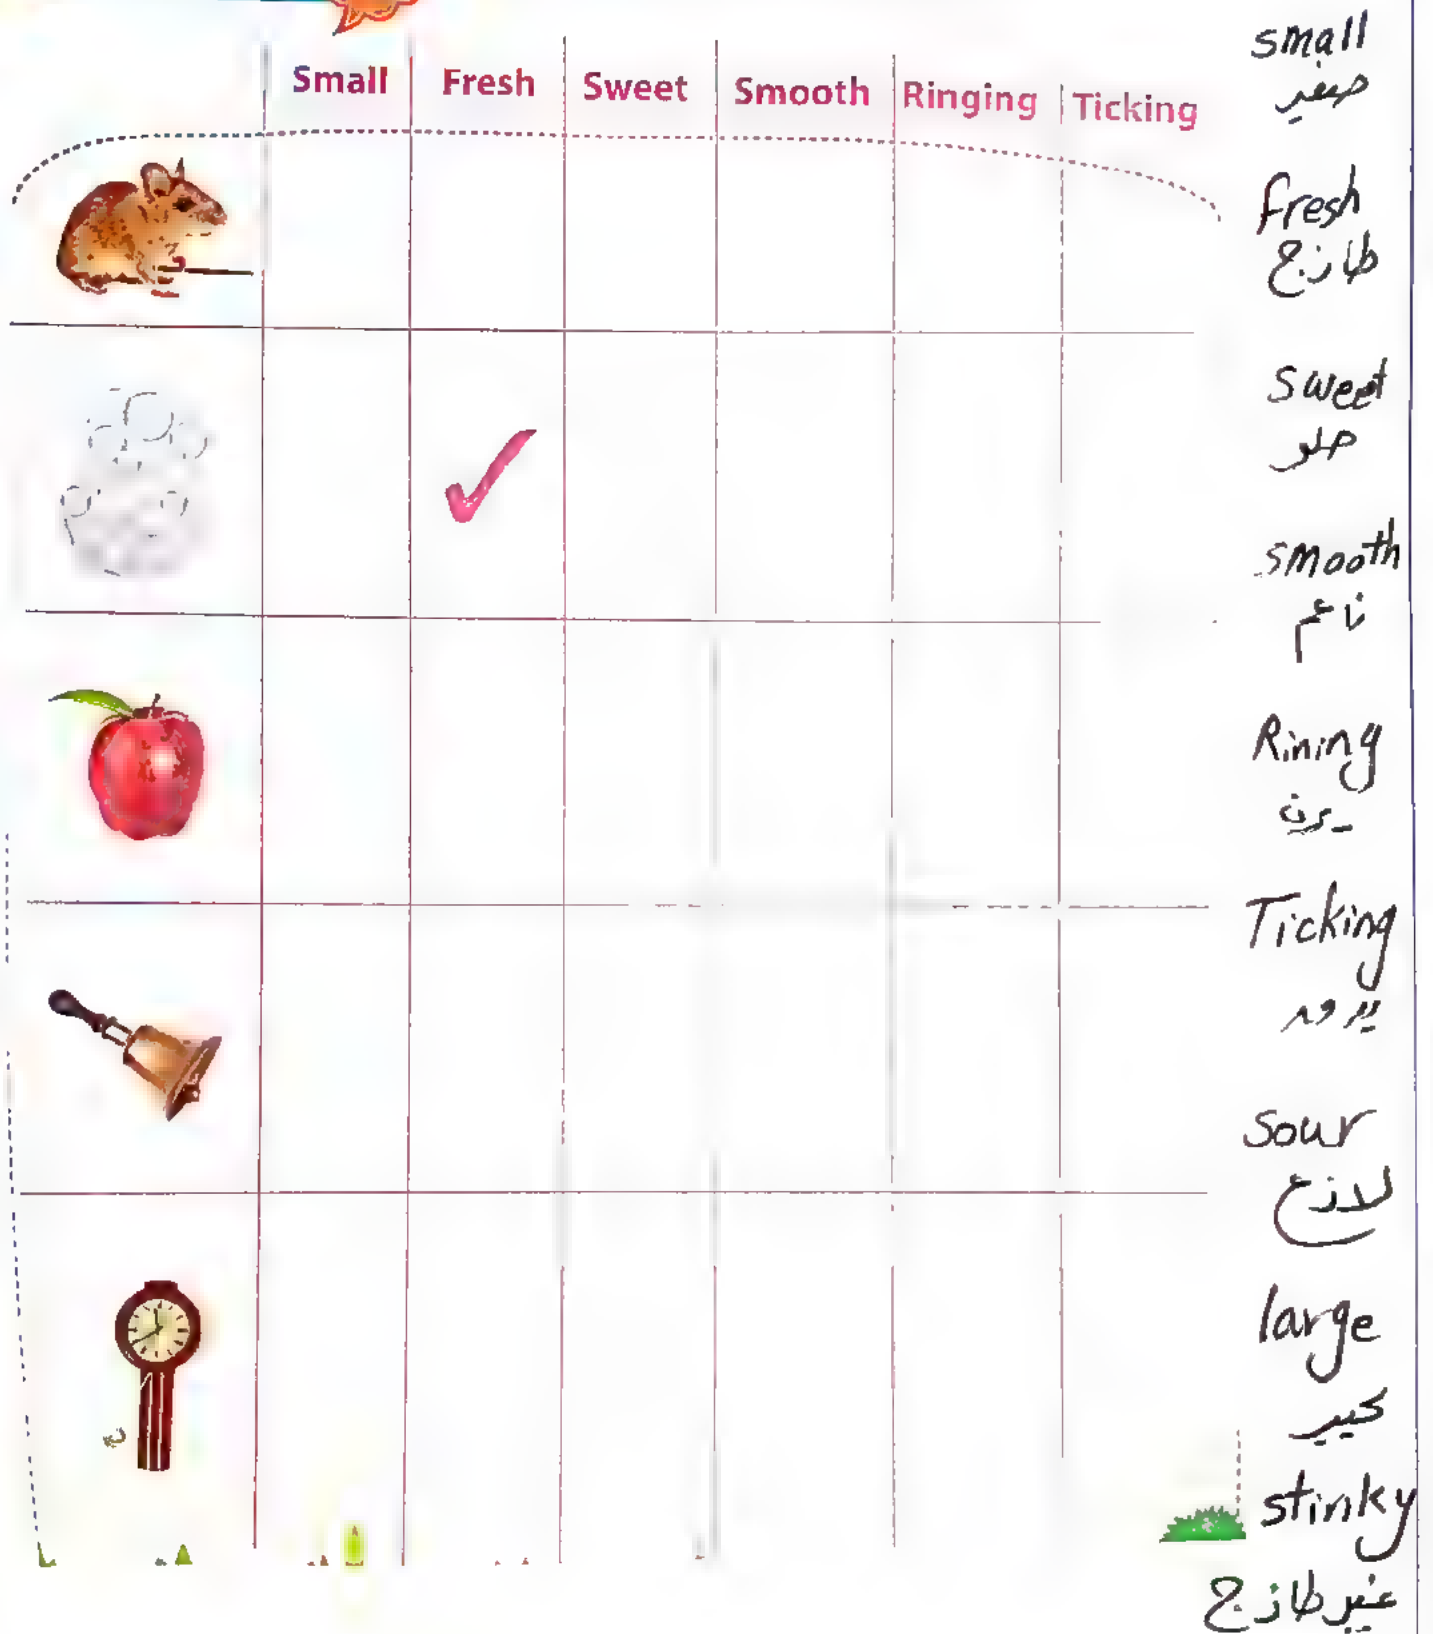 Small Fresh Sweet Smooth Ringing Ticking
small
صغير
fresh
طازج
sweet
حلو
smooth
ناعم
Rining
يرن
Ticking
sour
لاذع
large
كبير
stinky
غير طازج